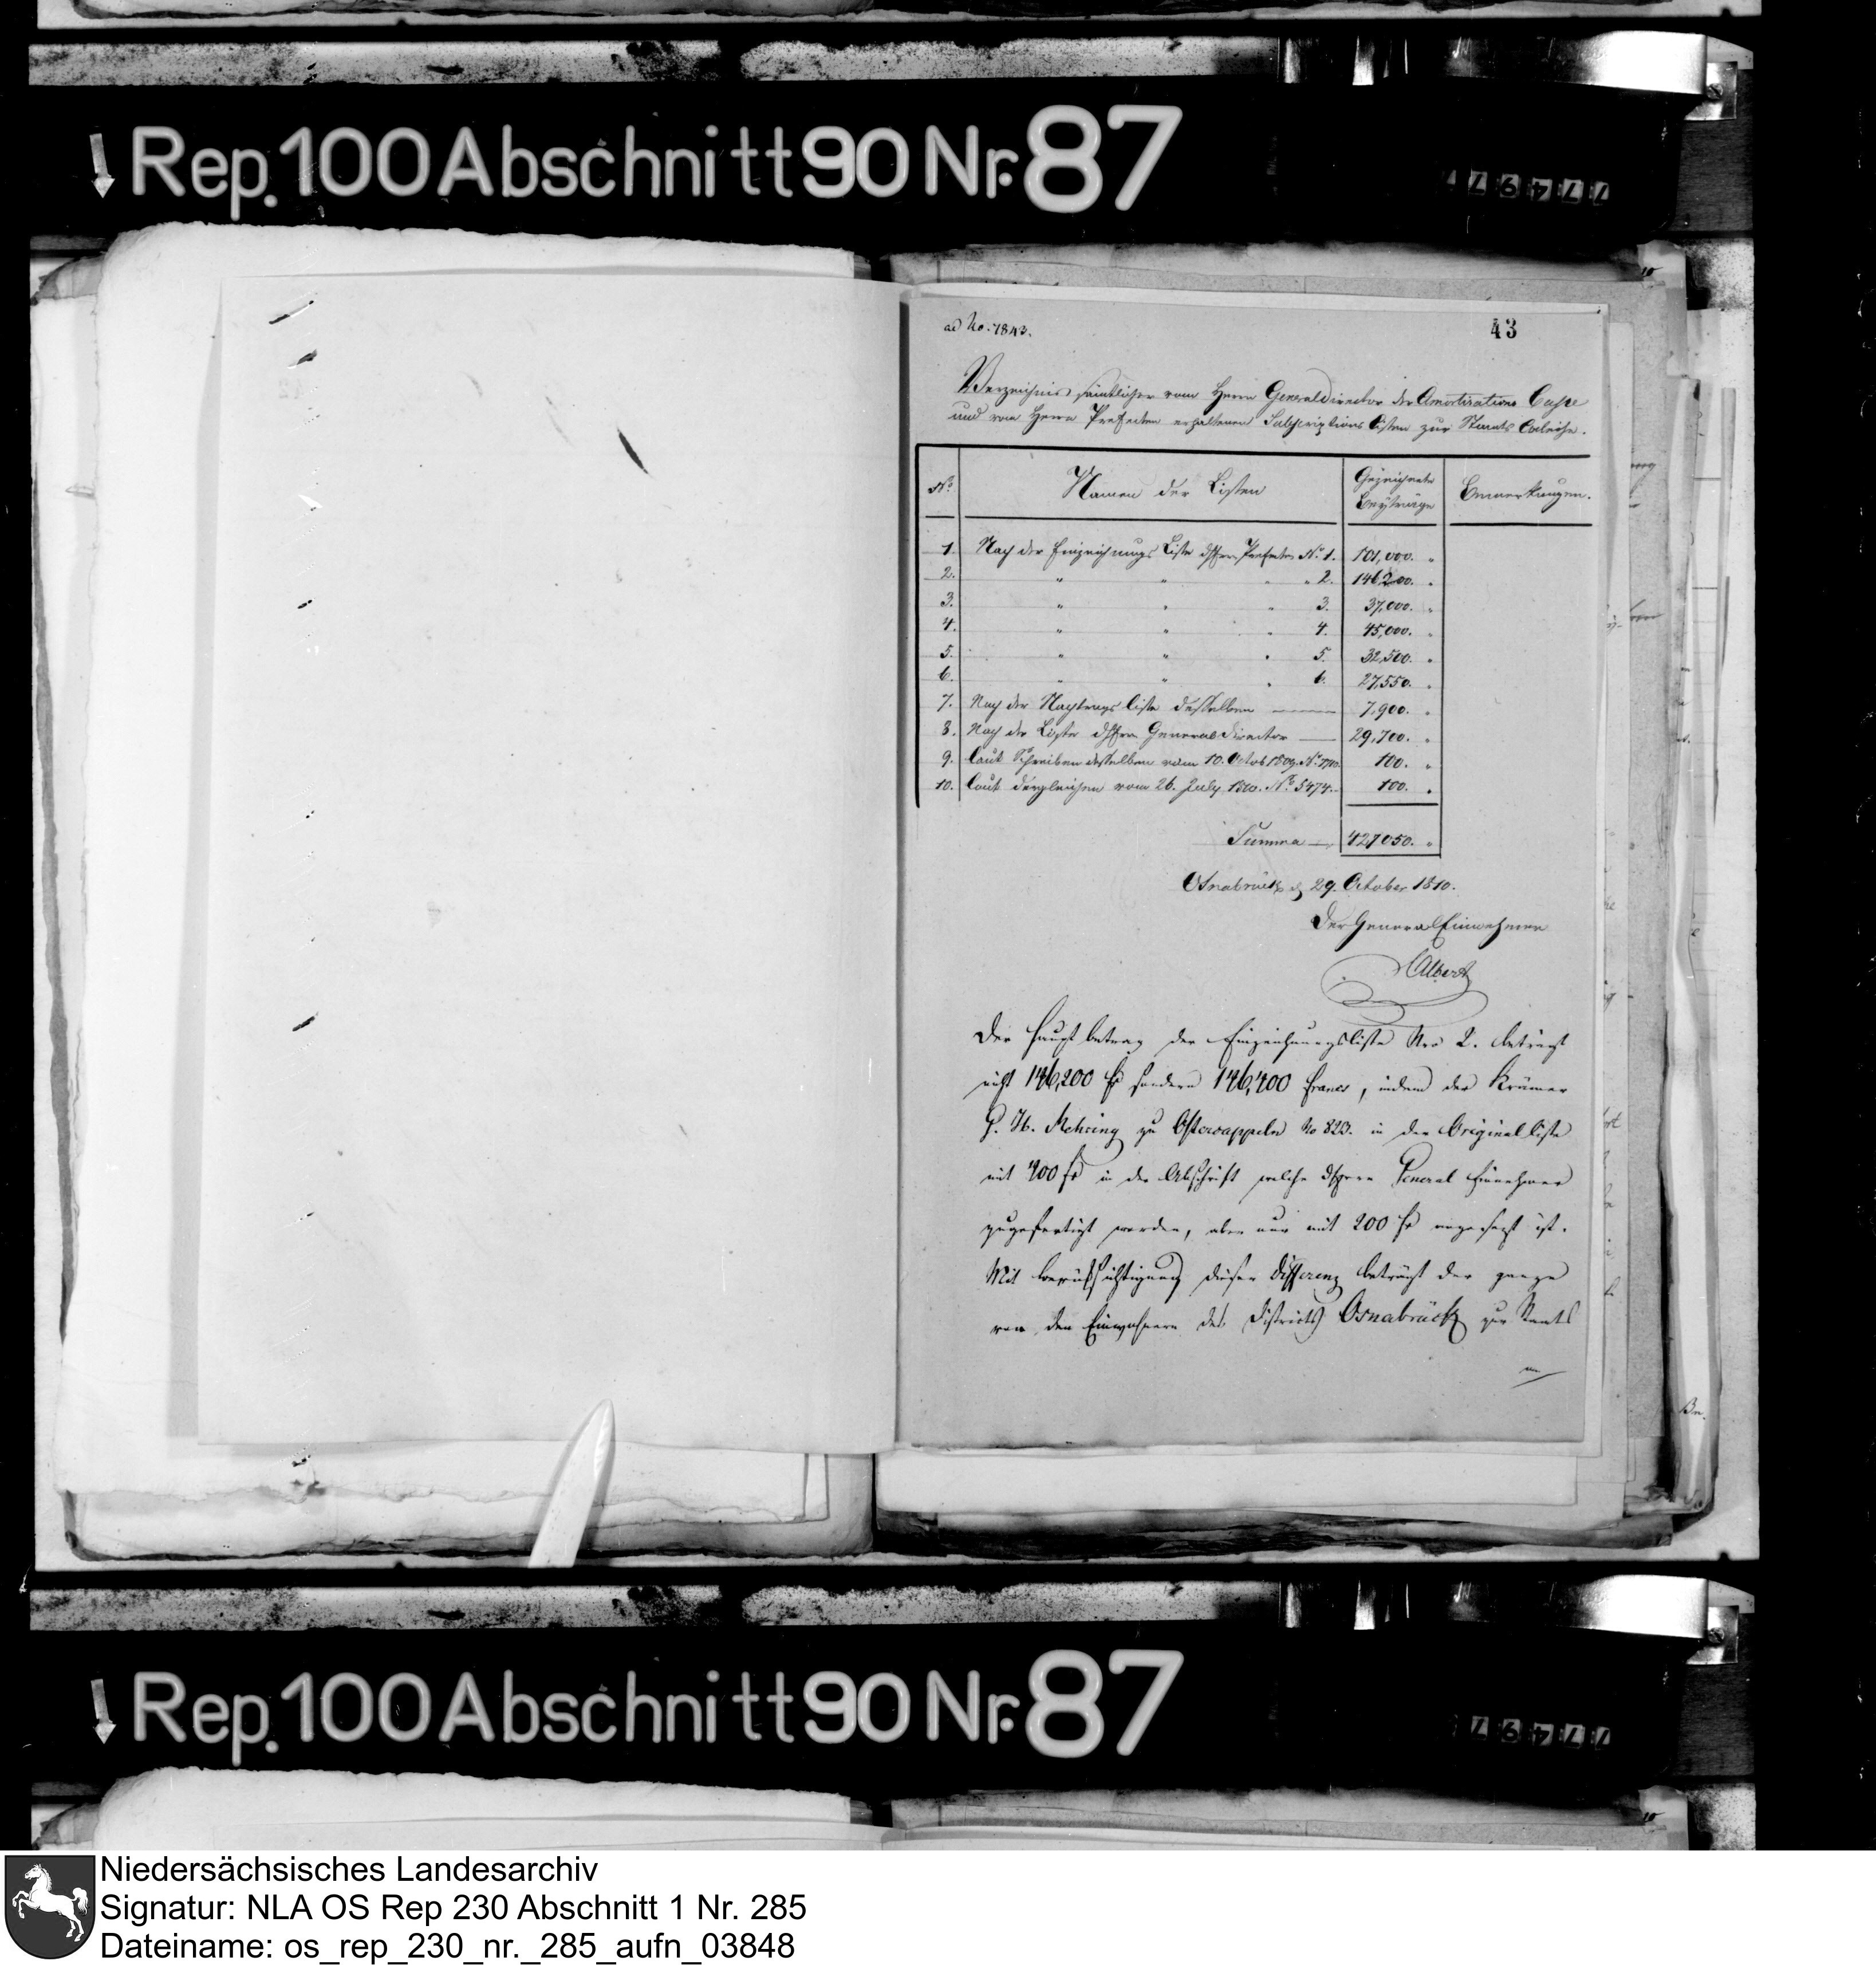 Rep. 100 Abschnitt 90 Nr. 87
ad No. 1843.
43
Verzeichnis sämtlicher vom Herrn Generaldirector der Amortisations Casse
und vom Herrn Prefecten erhaltenen Subscriptions Listen zur Staats Anleihe.
No. Namen der Listen Gezeichnete Beyträge Bemerkungen.
1. Nach der Einzeichnungs Liste des Herrn Prefecten No. 1. 101,000. "
2. " " " " 2. 146200. "
3. " " " 3. 37,000. "
4. " " " 4. 45,000. "
5. " " " 5. 32,500. "
6. " " " 6. 27,550. "
7. Nach der Nachtrags Liste desselben — 7,900. "
8. Nach der Liste des Herrn Generaldirector — 29,700. "
9. laut Schreiben desselben vom 10. Octob 1809. No. 100. "
10. laut dergleichen vom 26. July 1810. No. 5474. 100. "
Summa — 427050. "
Osnabrück d 29. October 1810.
Der General Einnehmer
Albert
Der Haupt betrag der Einzeichnungsliste Nro 2. beträgt
nicht 146,200 fr sondern 146,400 francs, indem der Krämer
G. H. Mehring zu Ostercappeln No 823. in der Originalliste
mit 400 fr in der Abschrift welche dem Herrn General Einnehmer
zugefertigt worden, aber nur mit 200 fr angesetzt ist.
Mit Berücksichtigung dieser Differenz beträgt der ganze
von den Einwohnern des Districts Osnabrück zur Staats
Rep. 100 Abschnitt 90 Nr. 87
Niedersächsisches Landesarchiv
Signatur: NLA OS Rep 230 Abschnitt 1 Nr. 285
Dateiname: os_rep_230_nr._285_aufn_03848